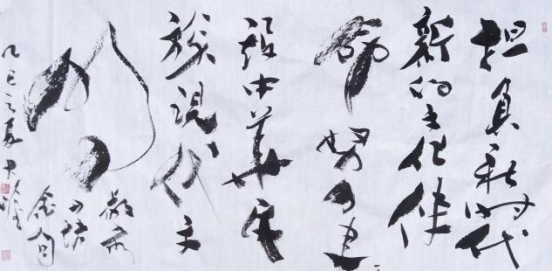 担负新时代
新的文化使
命努力建
设中华民
族现代文
明
乙巳之夏